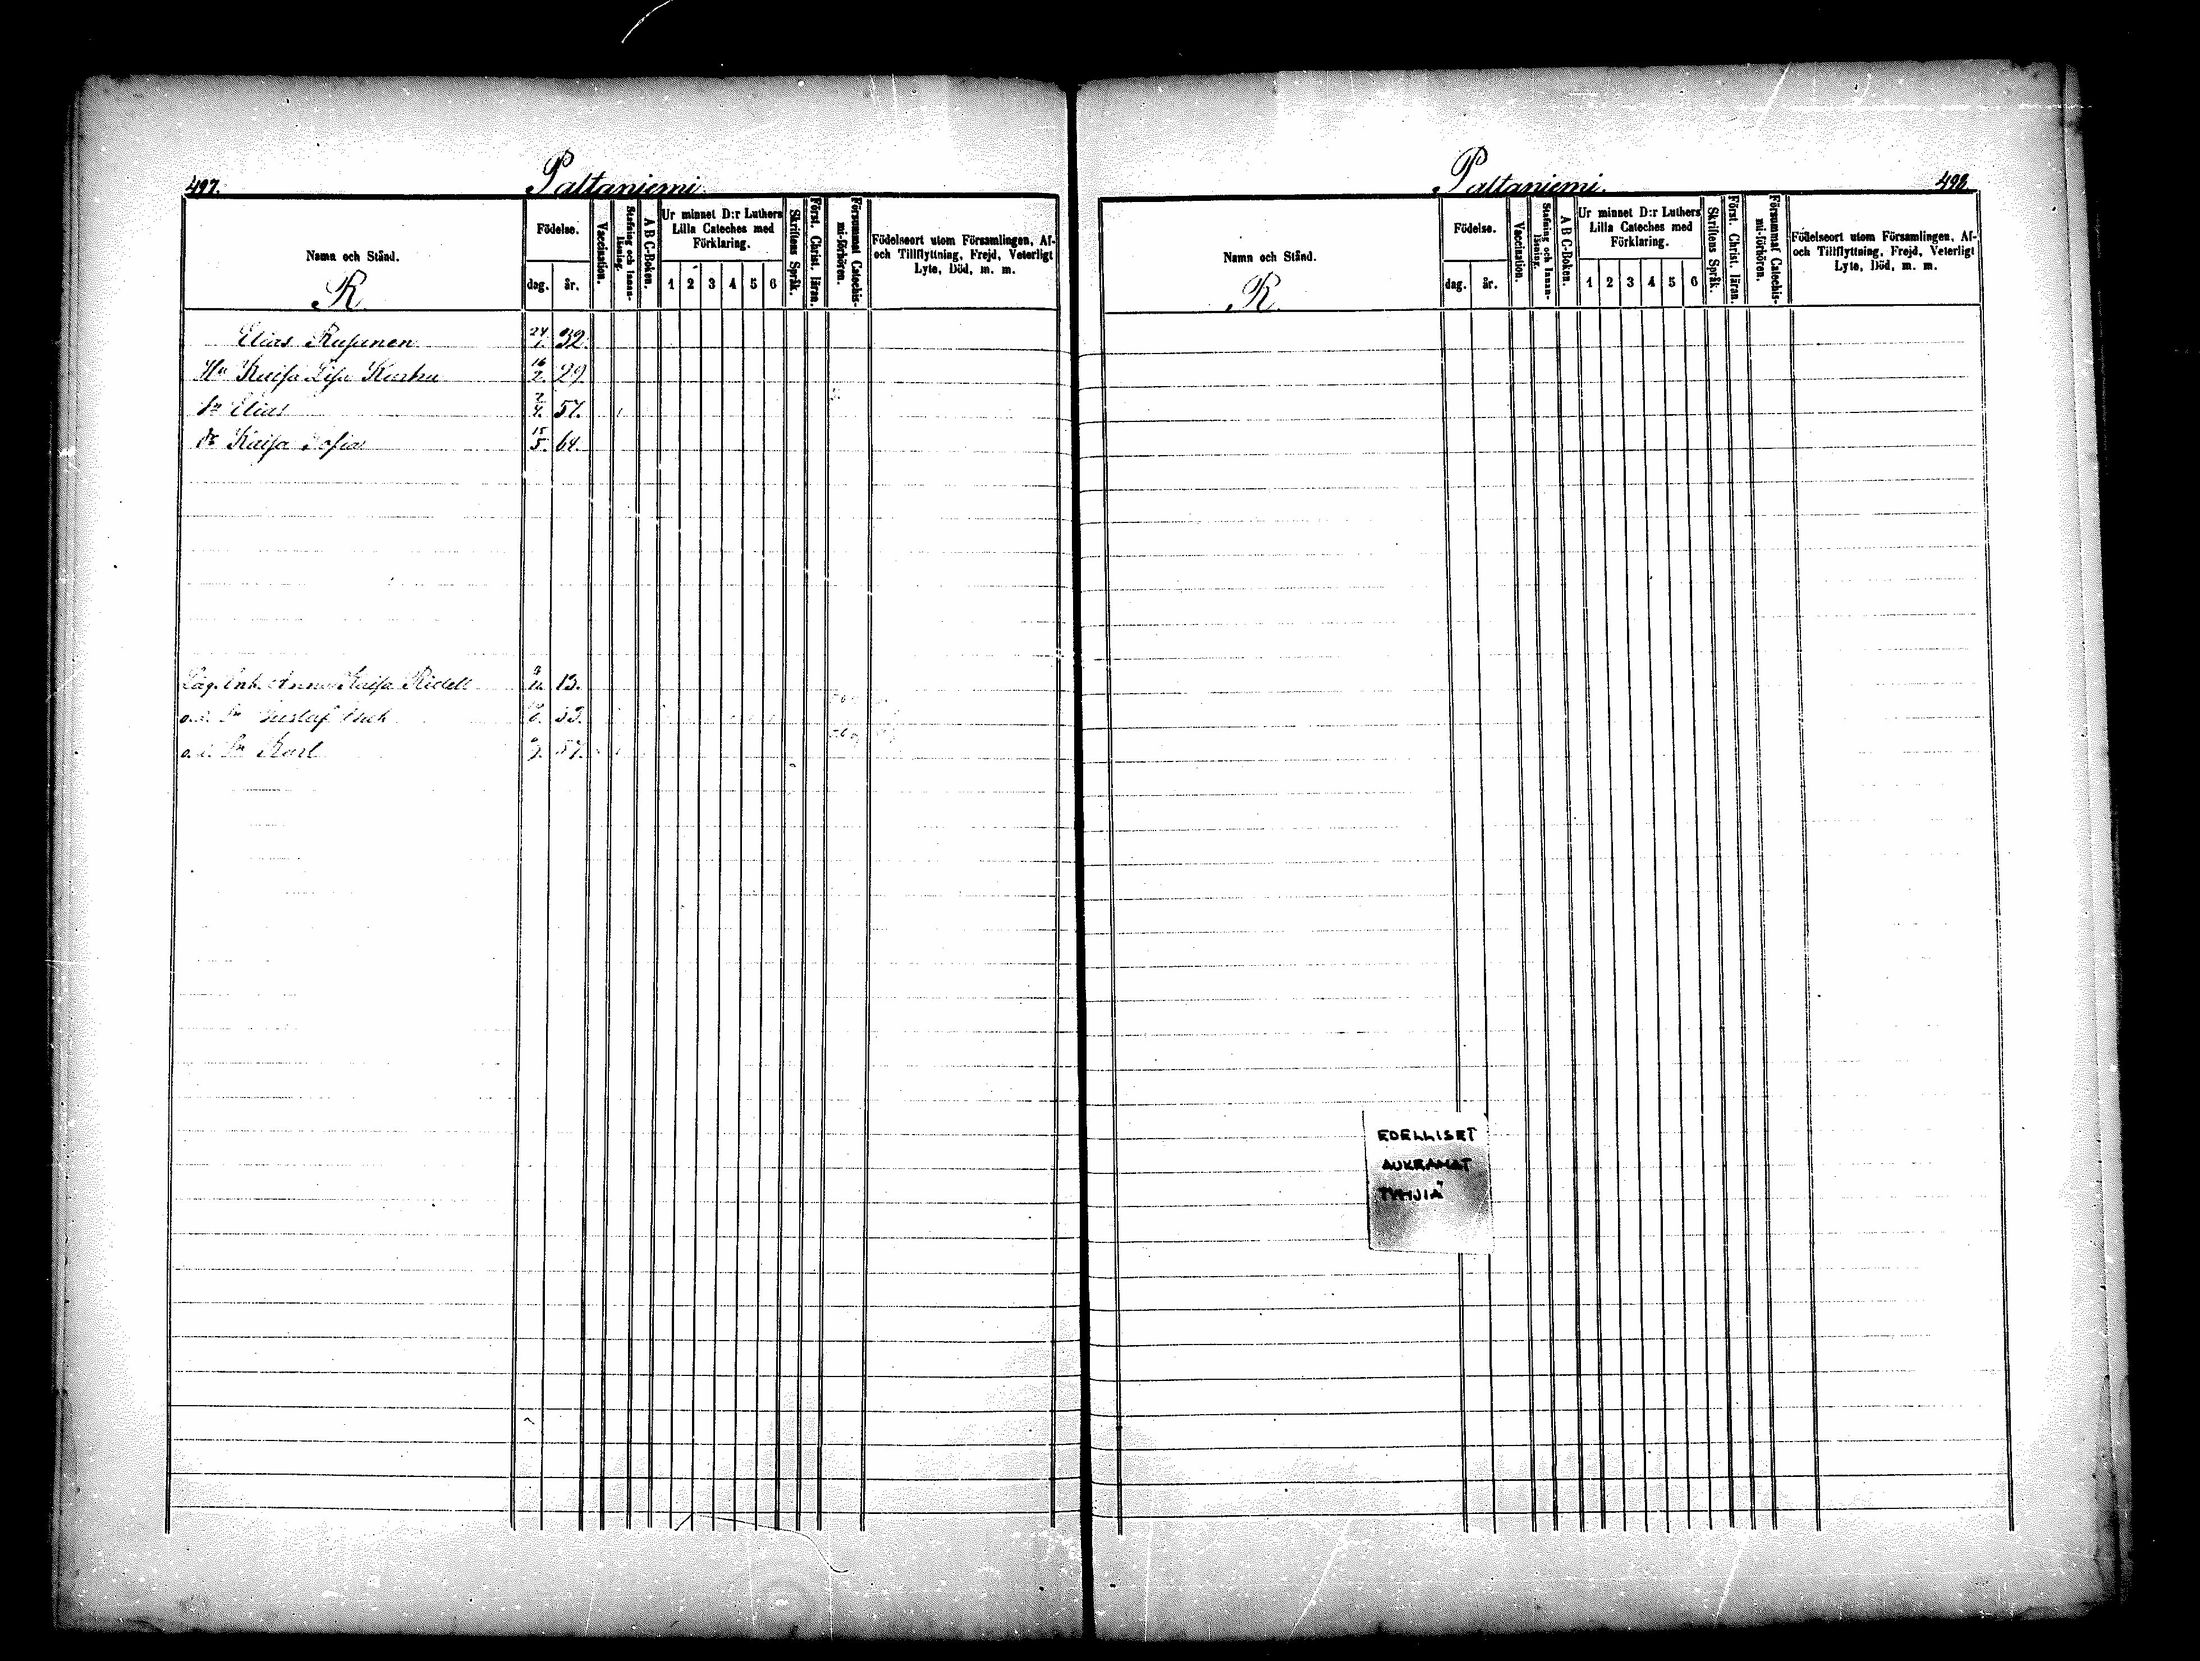 497.
Paltaniemi.
Namn och Stånd.
R.
Födelse.
dag.
år.
Vaccination.
Stafning och Innan-
läsning.
A B C-Boken.
Ur minnet D:r Luthers
Lilla Cateches med
Förklaring.
1 2 3 4 5 6
Skriftens Språk.
Först. Christ. läran.
Försummat Catechis-
mi-förhören.
Födelseort utom Församlingen, Af-
och Tillflyttning, Frejd, Veterligt
Lyte, Död, m. m.
Elias Rusanen 24/1. 32.
Hu Kaisa Lisa Karhu 16/2. 29.
Sn Elias 2/4. 57.
dr Kaisa Sofia 15/5. 64.
Anna Kaisa Ridell 13.
o.ä. Sn Gustaf 33.
o.ä. Sn Karl 57.
Paltaniemi.
498.
Namn och Stånd.
R.
Födelse.
dag.
år.
Vaccination.
Stafning och Innan-
läsning.
A B C-Boken.
Ur minnet D:r Luthers
Lilla Cateches med
Förklaring.
1 2 3 4 5 6
Skriftens Språk.
Först. Christ. läran.
Försummat Catechis-
mi-förhören.
Födelseort utom Församlingen, Af-
och Tillflyttning, Frejd, Veterligt
Lyte, Död, m. m.
EDELLISET
AUKEAMAT
TYHJIÄ